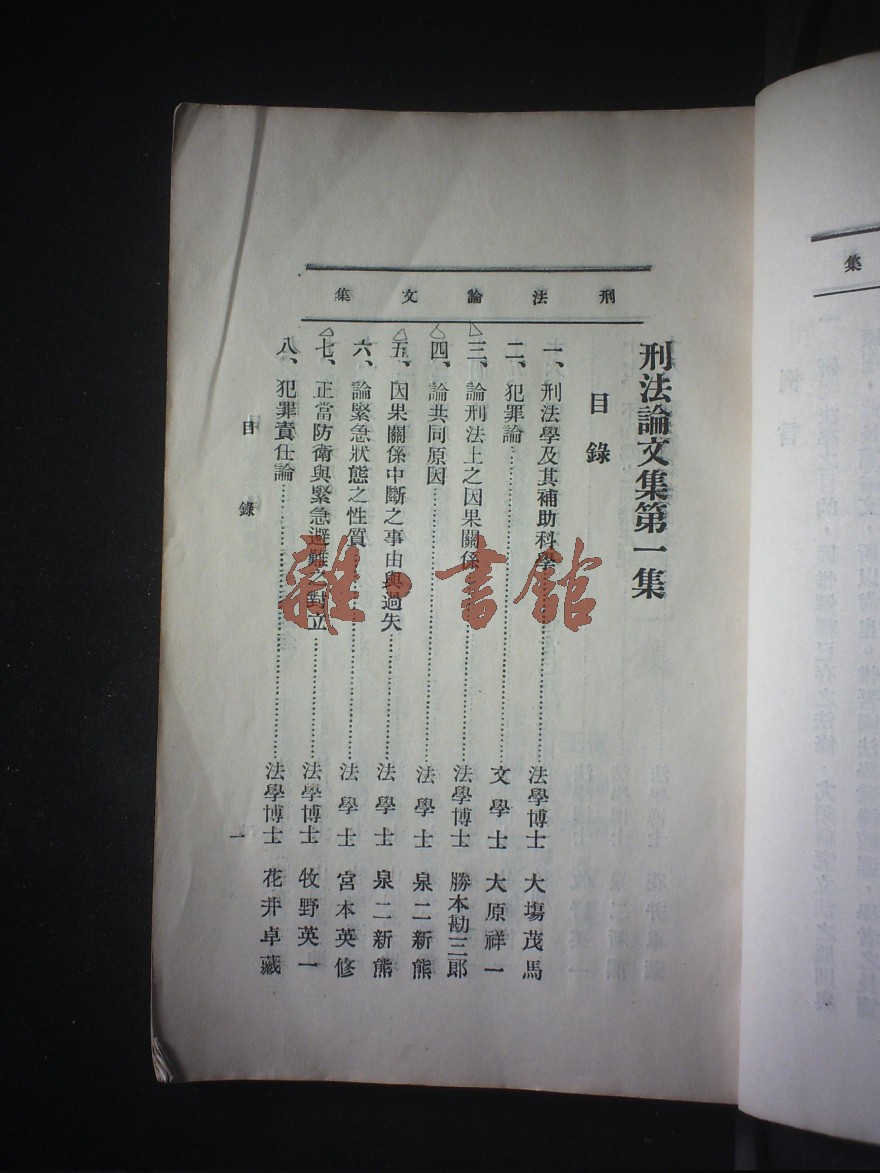 集
刑法論文集
刑法論文集第一集
目錄
一、刑法學及其補助科學……法學博士 大塲茂馬
二、犯罪論……文學士 大原祥一
三、論刑法上之因果關係……法學博士 勝本勘三郎
四、論共同原因……法學士 泉二新熊
五、因果關係中斷之事由與過失……法學士 泉二新熊
六、論緊急狀態之性質……法學士 宮本英修
七、正當防衛與緊急避難之對立……法學博士 牧野英一
八、犯罪責任論……法學博士 花井卓藏
目錄
一
雜·書館